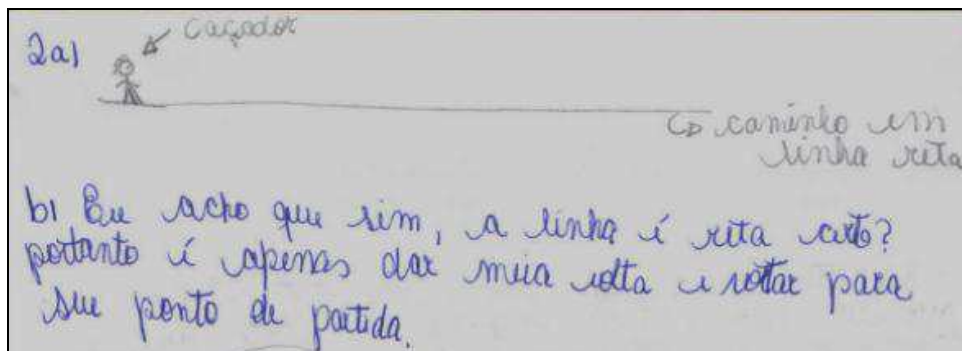 2a)
caçador
caminho em
linha reta
b) Eu acho que sim, a linha é reta certo?
portanto é apenas dar meia volta e voltar para
seu ponto de partida.